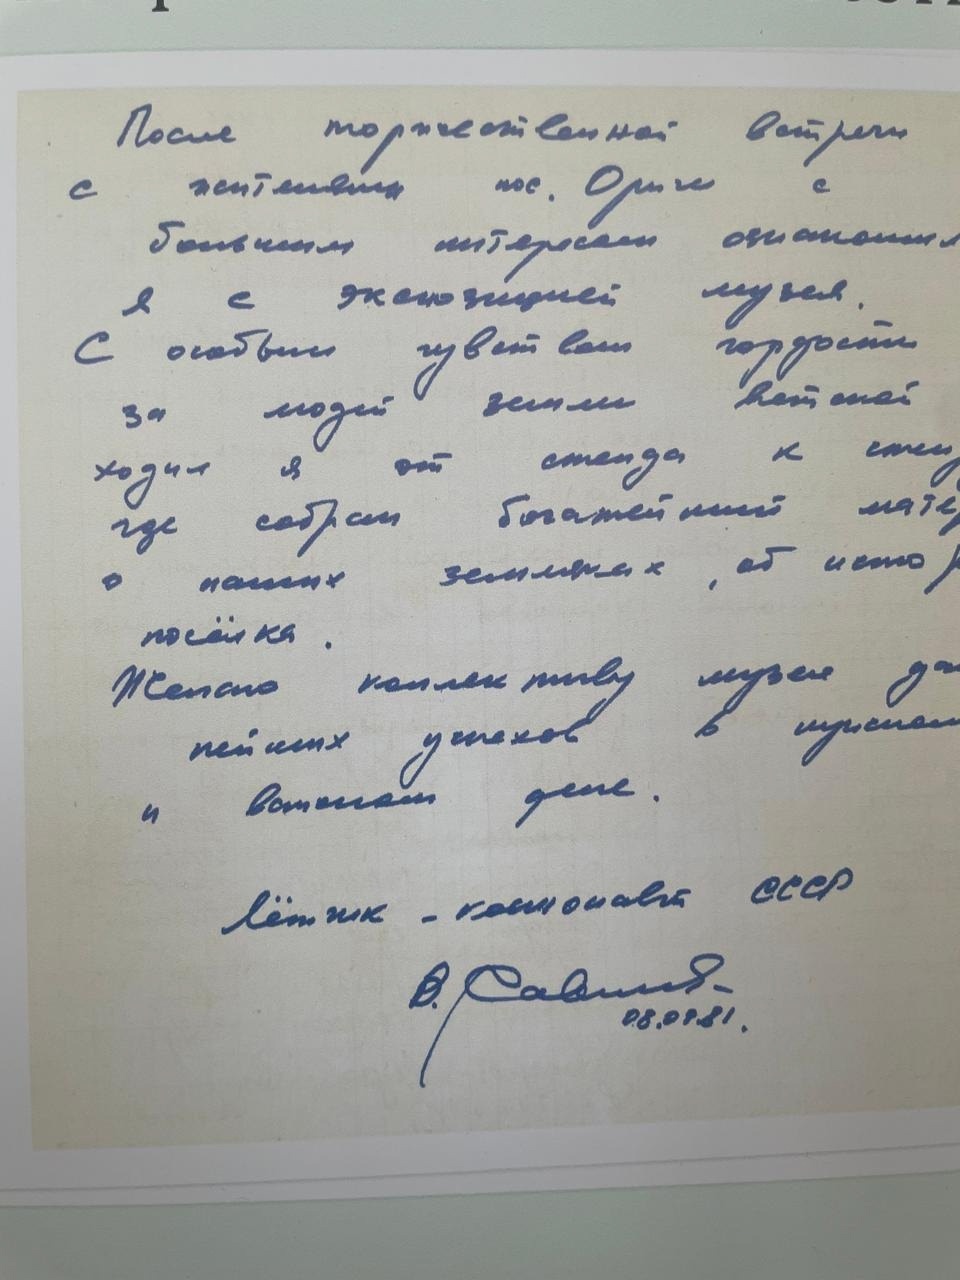 После торжественной встречи
с жителями пос. Оричи с
большим интересом ознакомил
я с экспозицией музея.
С особым чувством гордости
за людей земли вятской
ходил я от стенда к стенд
где собран богатейший матер
о наших земляках, об истор
посёлка.
Желаю коллективу музея да
нейших успехов в
и важном деле.
Лётчик-космонавт СССР
В. Савиных
81.